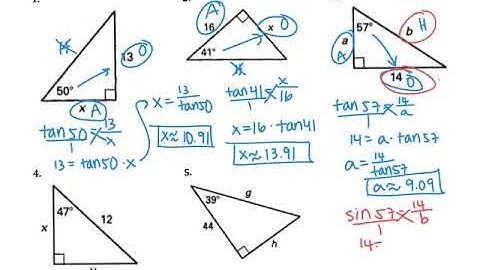 H
13 O
50°
x A
tan 50 / 1 = 13 / x
13 = tan50 · x
x = 13 / tan50
x ≈ 10.91
A
16
x O
41°
tan41 / 1 = x / 16
x = 16 · tan41
x ≈ 13.91
57°
a
A
b H
14 O
tan 57 / 1 = 14 / a
14 = a · tan57
a = 14 / tan57
a ≈ 9.09
sin 57 / 1 = 14 / b
14=
4.
47°
x
12
5.
39°
g
44
h